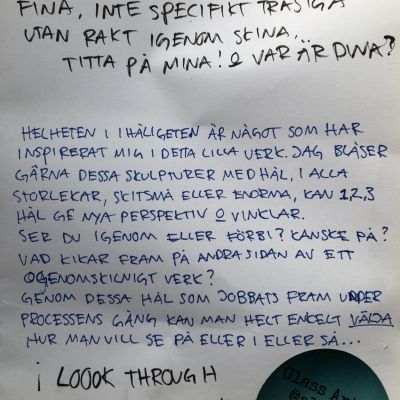 FINA, INTE SPECIFIKT TRASIGA
UTAN RAKT IGENOM SKINA,
TITTA PÅ MINA! & VAR ÄR DINA?
HELHETEN I IHÅLIGETEN ÄR NÅGOT SOM HAR
INSPIRERAT MIG I DETTA LILLA VERK. JAG BLÅSER
GÄRNA DESSA SKULPTURER MED HÅL, I ALLA
STORLEKAR, SKITSMÅ ELLER ENORMA, KAN 1,2,3
HÅL GE NYA PERSPEKTIV & VINKLAR.
SER DU IGENOM ELLER FÖRBI? KANSKE PÅ?
VAD KIKAR FRAM PÅ ANDRA SIDAN AV ETT
OGENOMSKILNIGT VERK?
GENOM DESSA HÅL SOM JOBBATS FRAM UNDER
PROCESSENS GÅNG KAN MAN HELT ENKELT VÄLJA
HUR MAN VILL SE PÅ ELLER I ELLER SÅ...
¡ LOOOK THROUGH
Glass